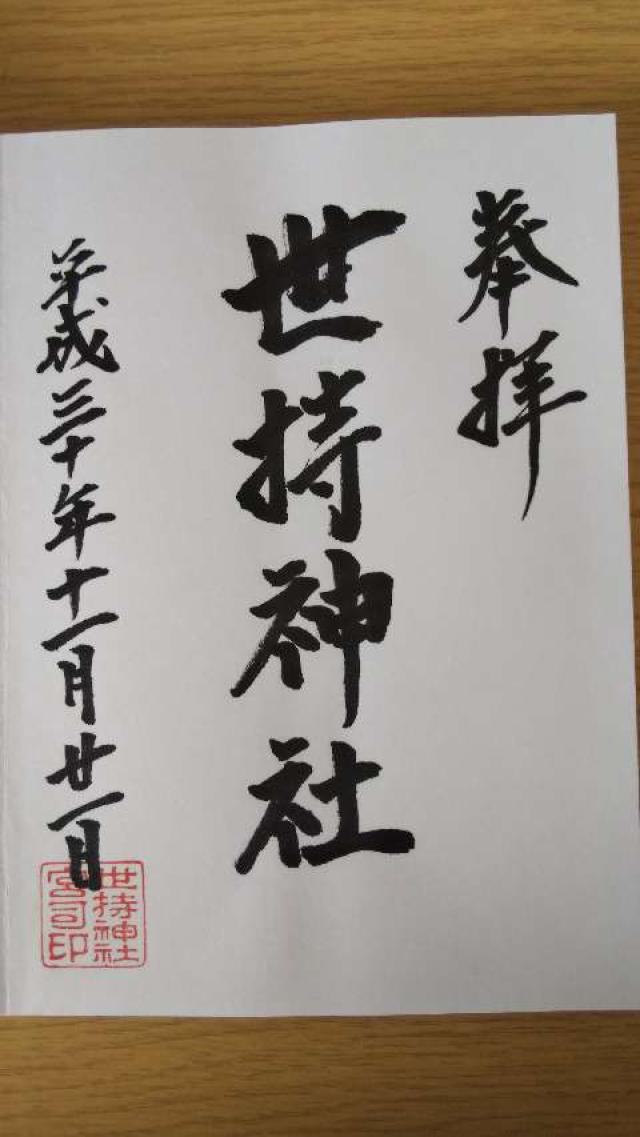 奉拝
世持神社
平成三十年十一月廿一日
世持神社
宮司印